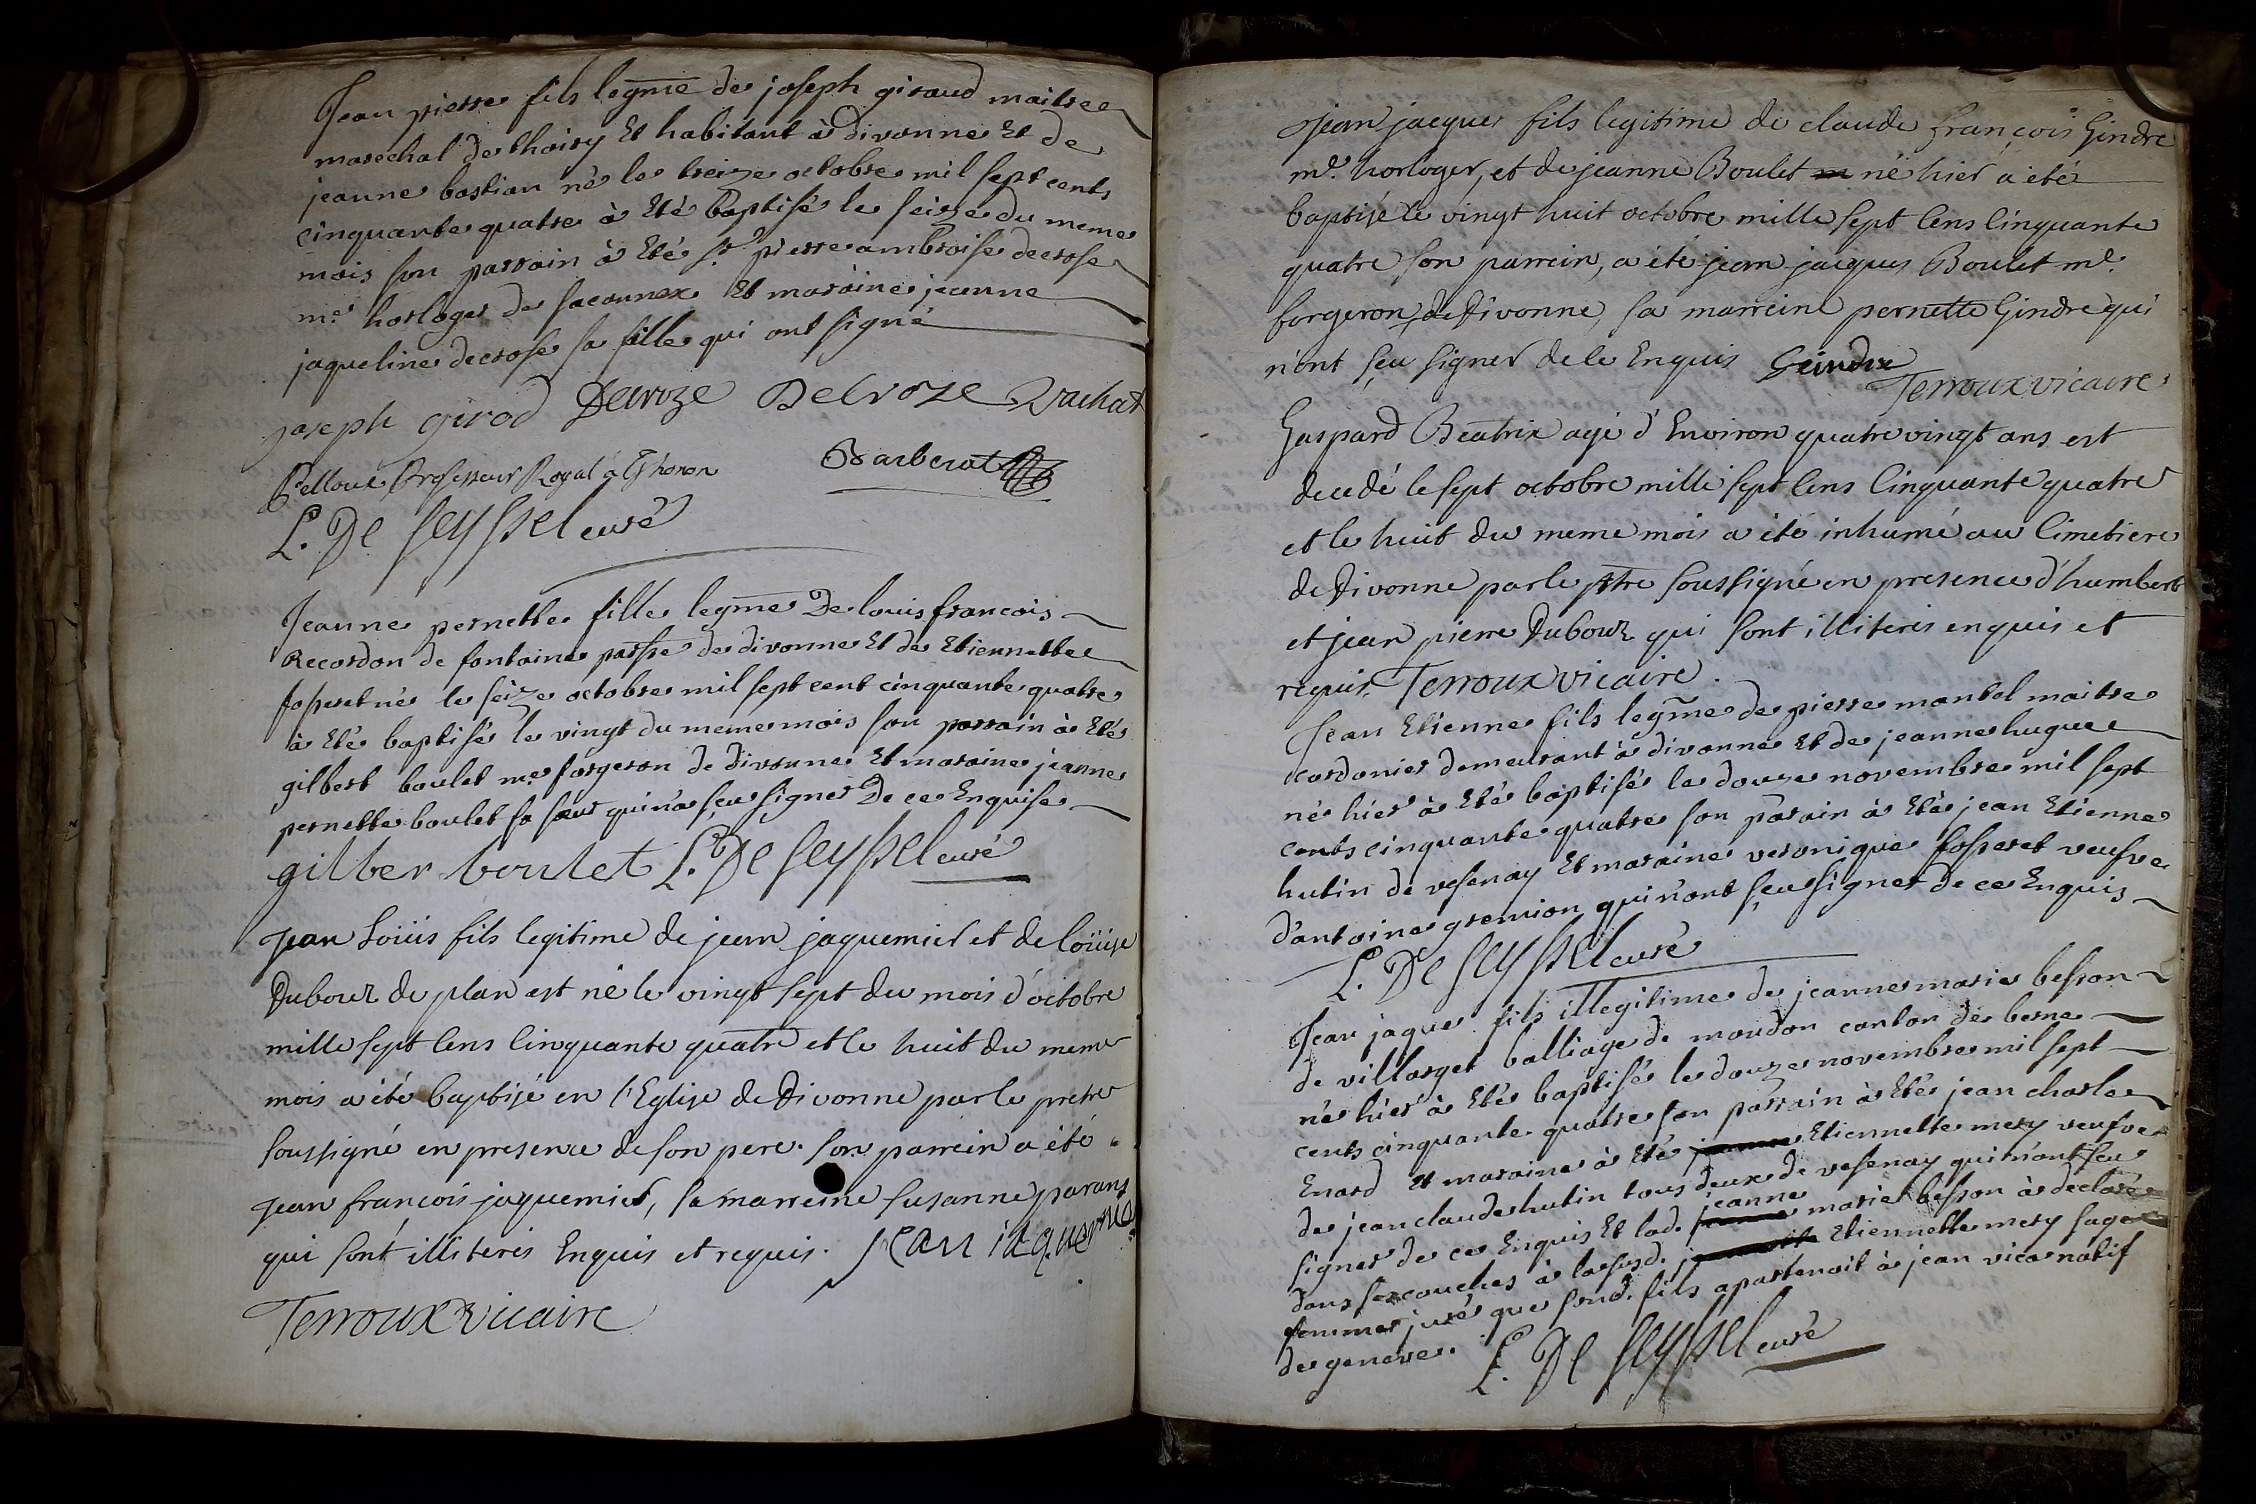 Jean pierre fils legme de joseph giraud maitre
marechal de thoiry Et habitant à divonne Et de
jeanne bastian né le treize octobre mil sept cents
cinquante quatre à Eté baptisé le seize du meme
mois son parrain à Eté sr pierre ambroise decrose
me horloger de saconnex Et maraine jeanne
jaqueline decrose sa fille qui ont signé
joseph girod Decroze Decroze Vachat
Pelloux Professeur Royal à Thonon Barberat
L. De Seyssel curé
Jeanne pernette fille legme De louis francois
Recordon de fontaine parsse de divonne Et de Etiennette
fosseret née le seize octobre mil sept cent cinquante quatre
à Eté baptisée le vingt du meme mois son parrain à Eté
gilbert boulet me forgeron de divonne Et maraine jeanne
pernette boulet sa sœur qui n'a sçu signer De ce Enquise
gilber boulet L. De Seyssel curé
Jean Loüis fils legitime de jean jaquemier et de loüise
Dubouz de plan est né le vingt sept du mois d'octobre
mille sept cens cinquante quatre et le huit du meme
mois a été baptisé en l'Eglise de Divonne par le pretre
soussigné en presence de son pere. son parrein a été
jean francois jaquemier, sa marreine susanne parans
qui sont illiteres Enquis et requis. jean iaquemie
Terroux vicaire
Jean jacques fils legitime de claude françois Gindre
me. horloger, et de jeanne Boulet né hier a été
baptisé le vingt huit octobre mille sept cens cinquante
quatre son parrein, a été jean jacques Boulet me.
forgeron de Divonne, sa marreine pernette Gindre qui
n'ont sçu signer de ce Enquis Geindre
Terroux vicaire
Gaspard Beatrix agé d'Environ quatre vingt ans est
decedé le sept octobre mille sept cens cinquante quatre
et le huit du meme mois a été inhumé au cimetiere
de Divonne par le ptre soussigné en presence d'humbert
et jean pierre Dubouz qui sont illiteres enquis et
requis. Terroux vicaire.
Jean Etienne fils legme de pierre mantel maitre
cordonier demeurant à divonne Et de jeanne hugue
né hier à Eté baptisé le douze novembre mil sept
cents cinquante quatre son parain à Eté jean Etienne
hutin de vesenay Et maraine veronique fosseret veufve
d'antoine gremion qui n'ont sçu signer de ce Enquis
L. De Seyssel curé
Jean jaques fils illegitime de jeanne marie besson
de villarget balliage de moudon canton de berne
né hier à Eté baptisé le douze novembre mil sept
cents cinquante quatre son parrain à Eté jean charle
Enard Et maraine à Eté jeanne Etiennette mery veufve
de jean claude hutin tous deux de vesenay qui n'ont sçu
signer de ce Enquis Et lad. jeanne marie besson à declaré
dans ses couches à la susd. Etiennette mery sage
femme juré que sond. fils apartenoit à jean vica natif
de geneve. L. De Seyssel curé